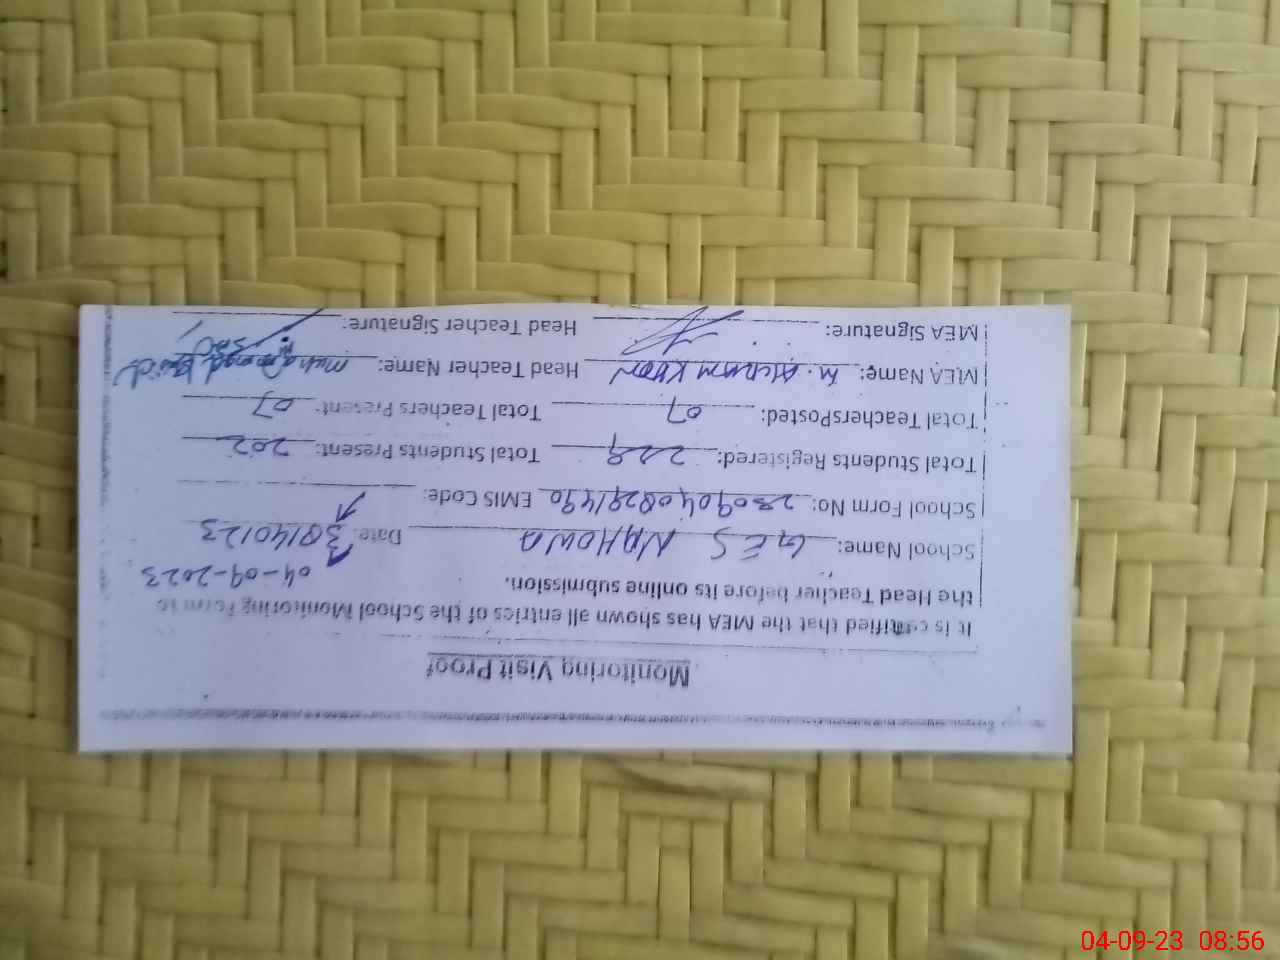 Monitoring Visit Proof
It is certified that the MEA has shown all entries of the School Monitoring Form to
the Head Teacher before its online submission.
04-09-2023
School Name: GES NAHOWA Date: 38140123
School Form No: EMIS Code:
Total Students Registered: 229 Total Students Present: 202
Total TeachersPosted: 07 Total Teachers Present: 07
MEA Name: M. Head Teacher Name: Muhammad
MEA Signature: Head Teacher Signature:
04-09-23 08:56